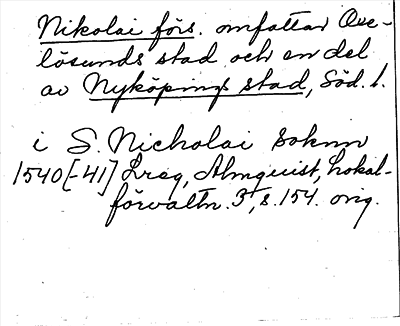 Nikolai förs. omfattar Oxe-
lösunds stad och en del
av Nyköpings stad, Söd. l.
i S. Nicholai soknn
1540[-41] Lräg, Almquist, Lokal-
förvaltn. 3, s. 154. orig.